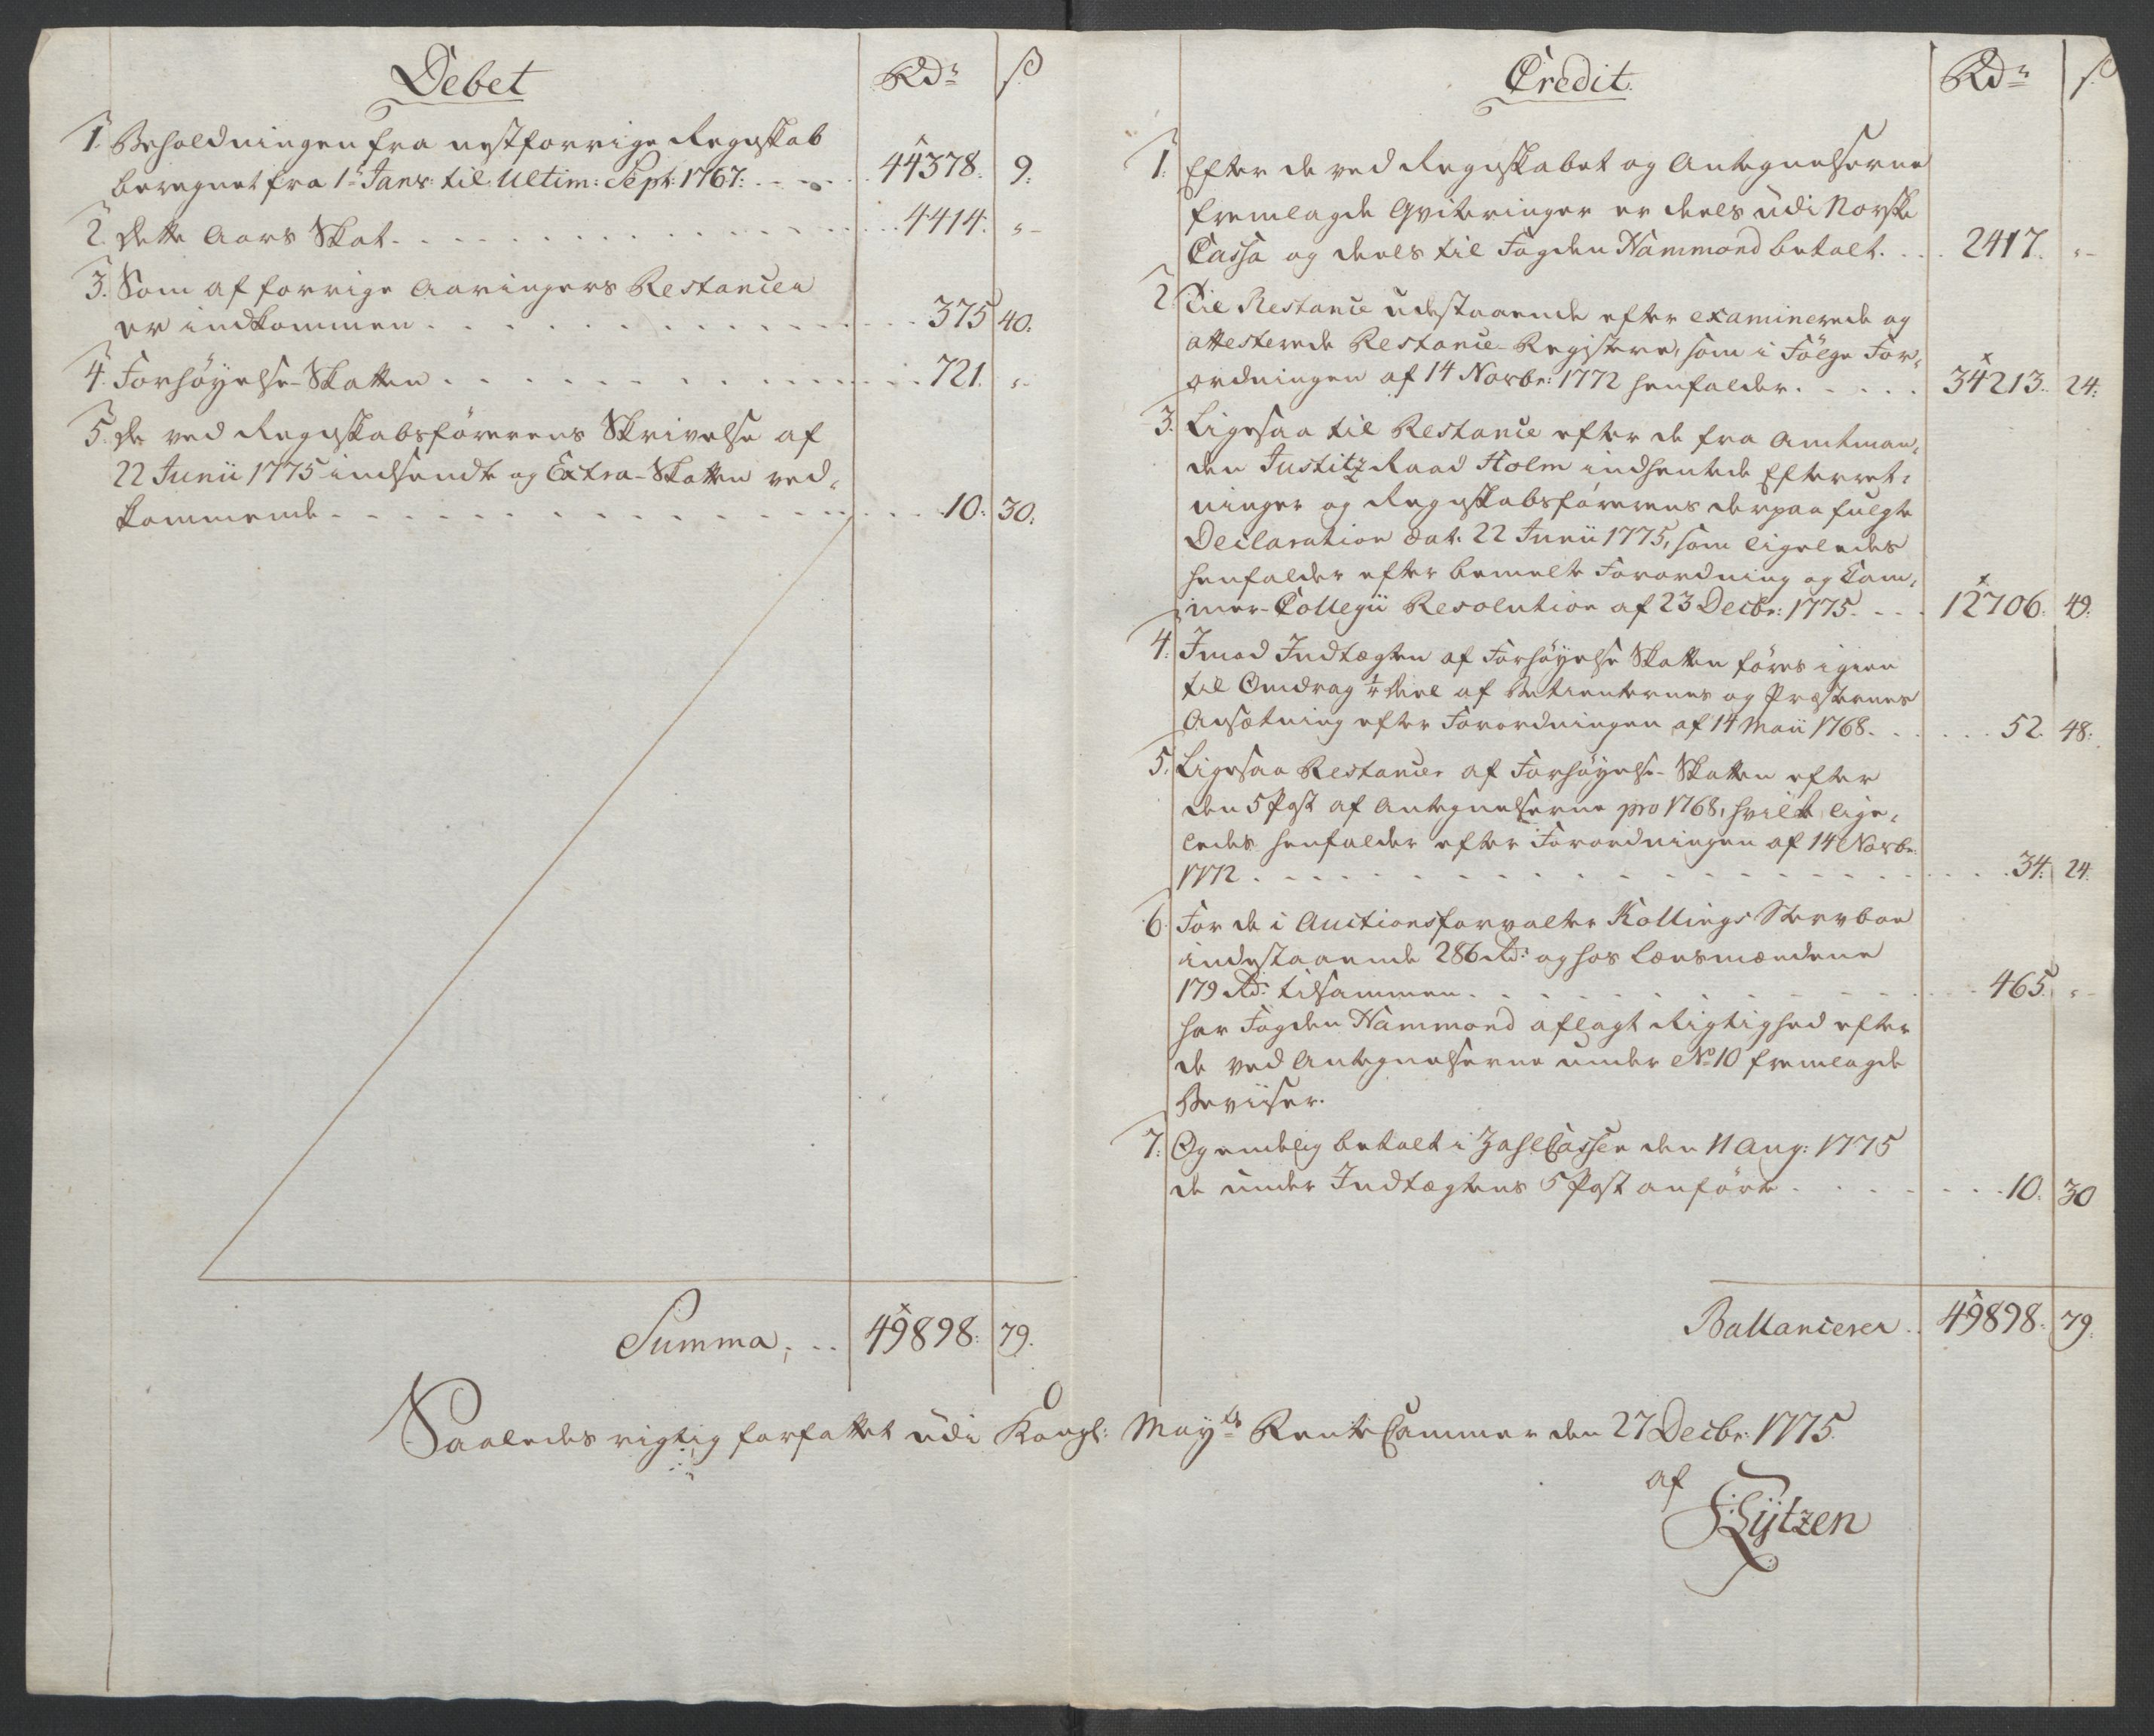 Debet Rdr ß
1. Beholdningen fra nestforrige Regnskab
beregnet fra 1te Janr: til Ultim: Sept: 1767: . . . . 44378. 9:
2. dette Aars Skat . . . . 4414. „-
3. Som af forrige Aaringers Restancer
er indkommen . . . . 375 40.
4. Forhøyelse-Skatten . . . . 721. „-
5. De ved Regnskabsførerens Skrivelse af
22 Junii 1775 indsendte og Extra-Skatten ved-
kommende . . . . 10: 30:
Summa, . . 49898: 79.
Credit. Rdr ß
1. Efter de ved Regnskabet og Antegnelserne
fremlagde Qviteringer er deels udi Norske
Cassa og deels til Fogden Hammond betalt. . . 2417. „-
2. Til Restance udestaaende efter examinerede og
attesterede Restance-Registere, som i Følge For-
ordningen af 14 Novbr: 1772 henfalder. . . . . 34213. 24:
3. Ligesaa til Restance efter de fra Amtman-
den Justitz Raad Holm indhentede Efterret-
ninger og Regnskabsførerens derpaa fulgte
Declaration dat: 22 Junii 1775, som ligeledes
henfalder efter bemelte Forordning og Cam-
mer-Collegii Resolution af 23 Decbr: 1775. . . . 12706. 49:
4. Imod Indtægten af Forhøyelse Skatten føres igien
til Omdrag 1/4 Deel af Betienternes og Præsternes
Ansætning efter Forordningen af 14 Maii 1768. . . . 52. 48:
5. Ligesaa Restancer af Forhøyelse-Skatten efter
den 5 Post af Antegnelserne pro 1768, hvilke lige-
ledes henfalder efter Forordningen af 14 Novbr:
1772 . . . . 34. 24.
6. For de i Auctionsforvalter Kollings Sterboe
indestaaende 286 Rd: og hos Lensmændene
179 Rd: tilsammen . . . . 465. „-
har Fogden Hammond aflagt Rigtighed efter
de ved Antegnelserne under No 10 fremlagde
Beviiser.
7. Og endelig betalt i ZahlCassen den 11 Aug: 1775
de under Indtægtens 5 Post anførte . . . . 10. 30
Ballancerer . . 49898. 79.
Saaledes rigtig forfattet udi Kongl: Mayts RenteCammer den 27 Decbr: 1775.
af
Lÿtzen